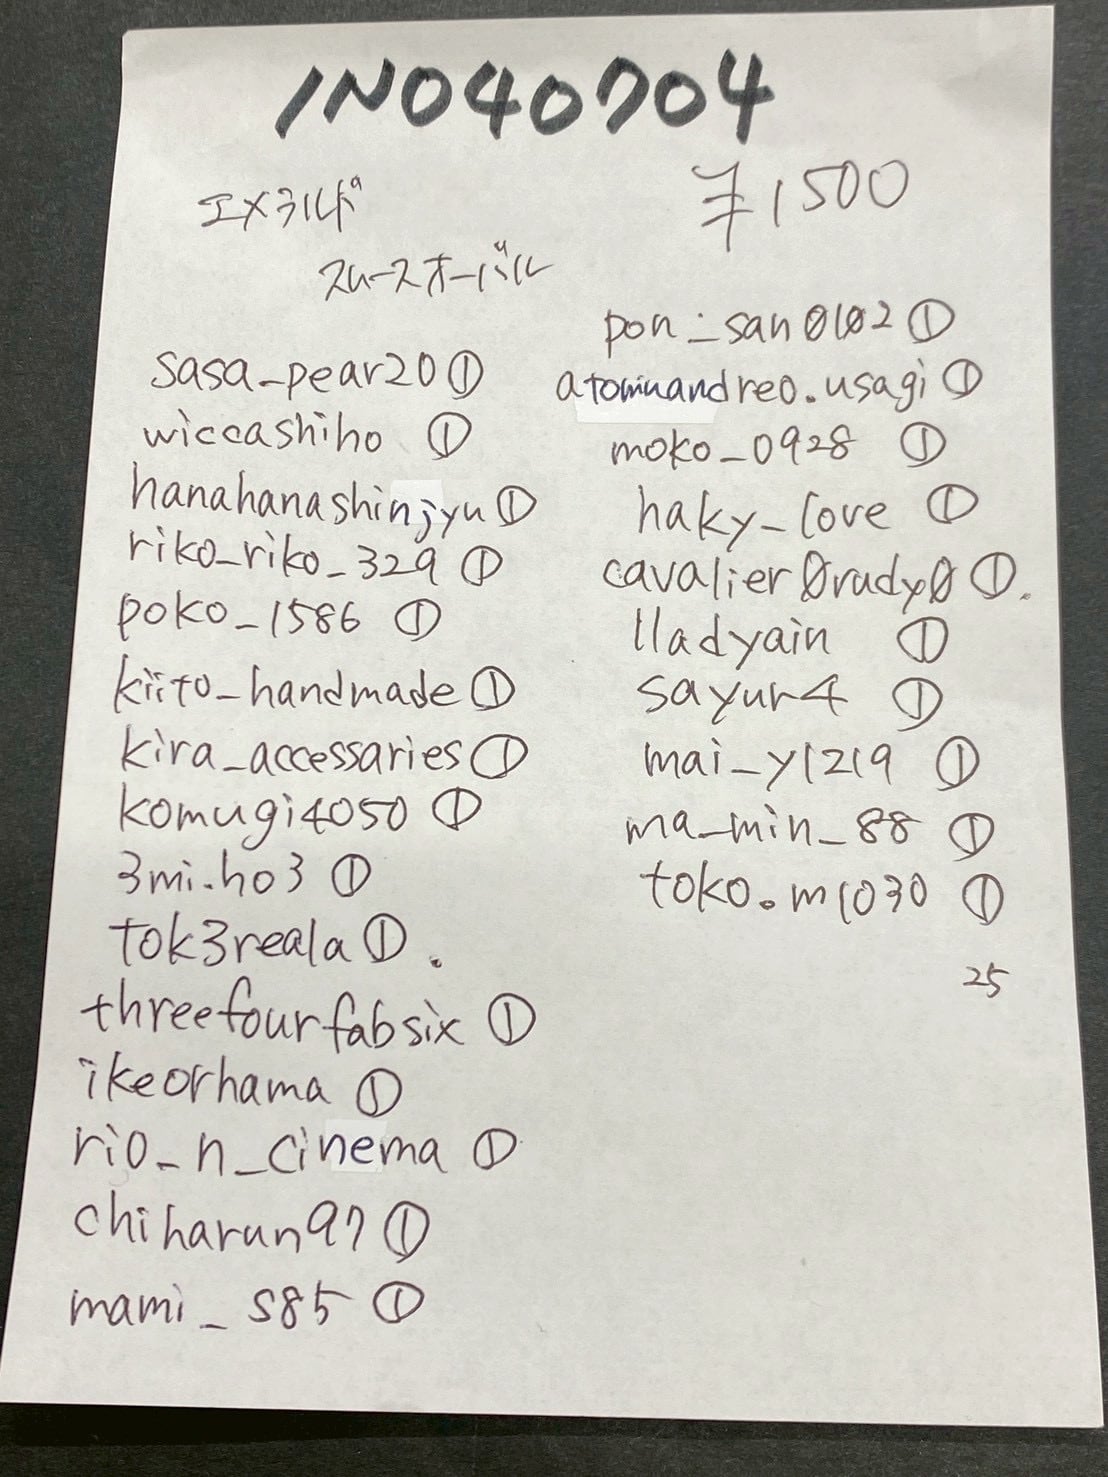 IN040704
エメラルド
¥1500
スムースオーバル
sasa_pear20①
wiccashiho ①
hanahanashinjyu①
riko_riko_329 ①
poko_1586 ①
kiito_handmade①
kira_accessaries①
komugi4050 ①
3mi.ho3 ①
tok3reala①.
threefourfabsix ①
ikeorhama ①
rio_n_cinema ①
chiharun97①
mami_s85 ①
pon_san0102①
atomuandreo.usagi①
moko_0928 ①
haky_love ①
cavalier0rudy0①.
lladyain ①
sayur4 ①
mai_y1219 ①
ma_min_88 ①
toko.m1030 ①
25